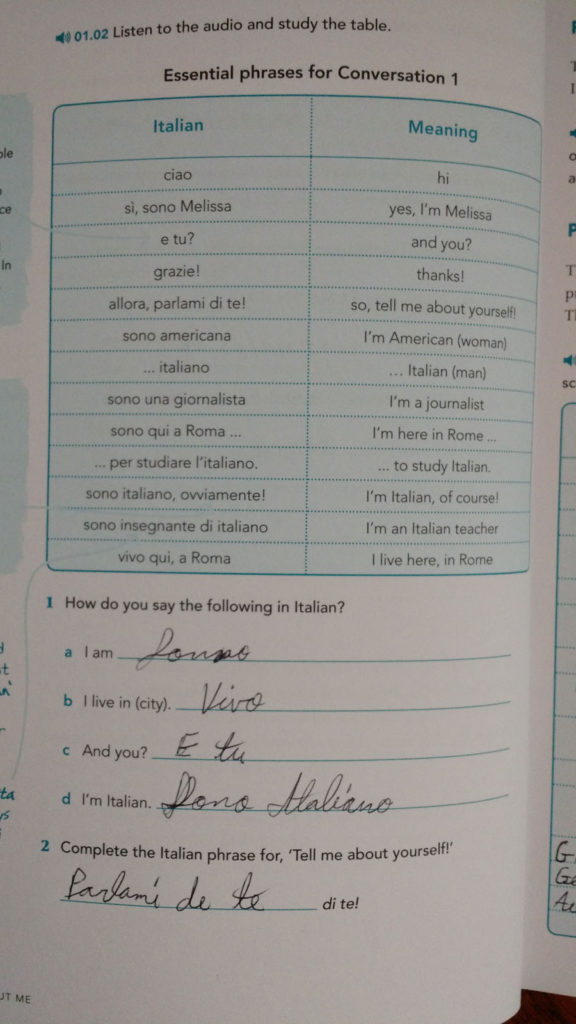 01.02 Listen to the audio and study the table.
Essential phrases for Conversation 1
Italian Meaning
ciao hi
sì, sono Melissa yes, I'm Melissa
e tu? and you?
grazie! thanks!
allora, parlami di te! so, tell me about yourself!
sono americana I'm American (woman)
... italiano ... Italian (man)
sono una giornalista I'm a journalist
sono qui a Roma ... I'm here in Rome ...
... per studiare l'italiano. ... to study Italian.
sono italiano, ovviamente! I'm Italian, of course!
sono insegnante di italiano I'm an Italian teacher
vivo qui, a Roma I live here, in Rome
1 How do you say the following in Italian?
a I am
b I live in (city). Vivo
c And you? E tu
d I'm Italian. Sono Italiano
2 Complete the Italian phrase for, 'Tell me about yourself!'
Parlami de te di te!
UT ME